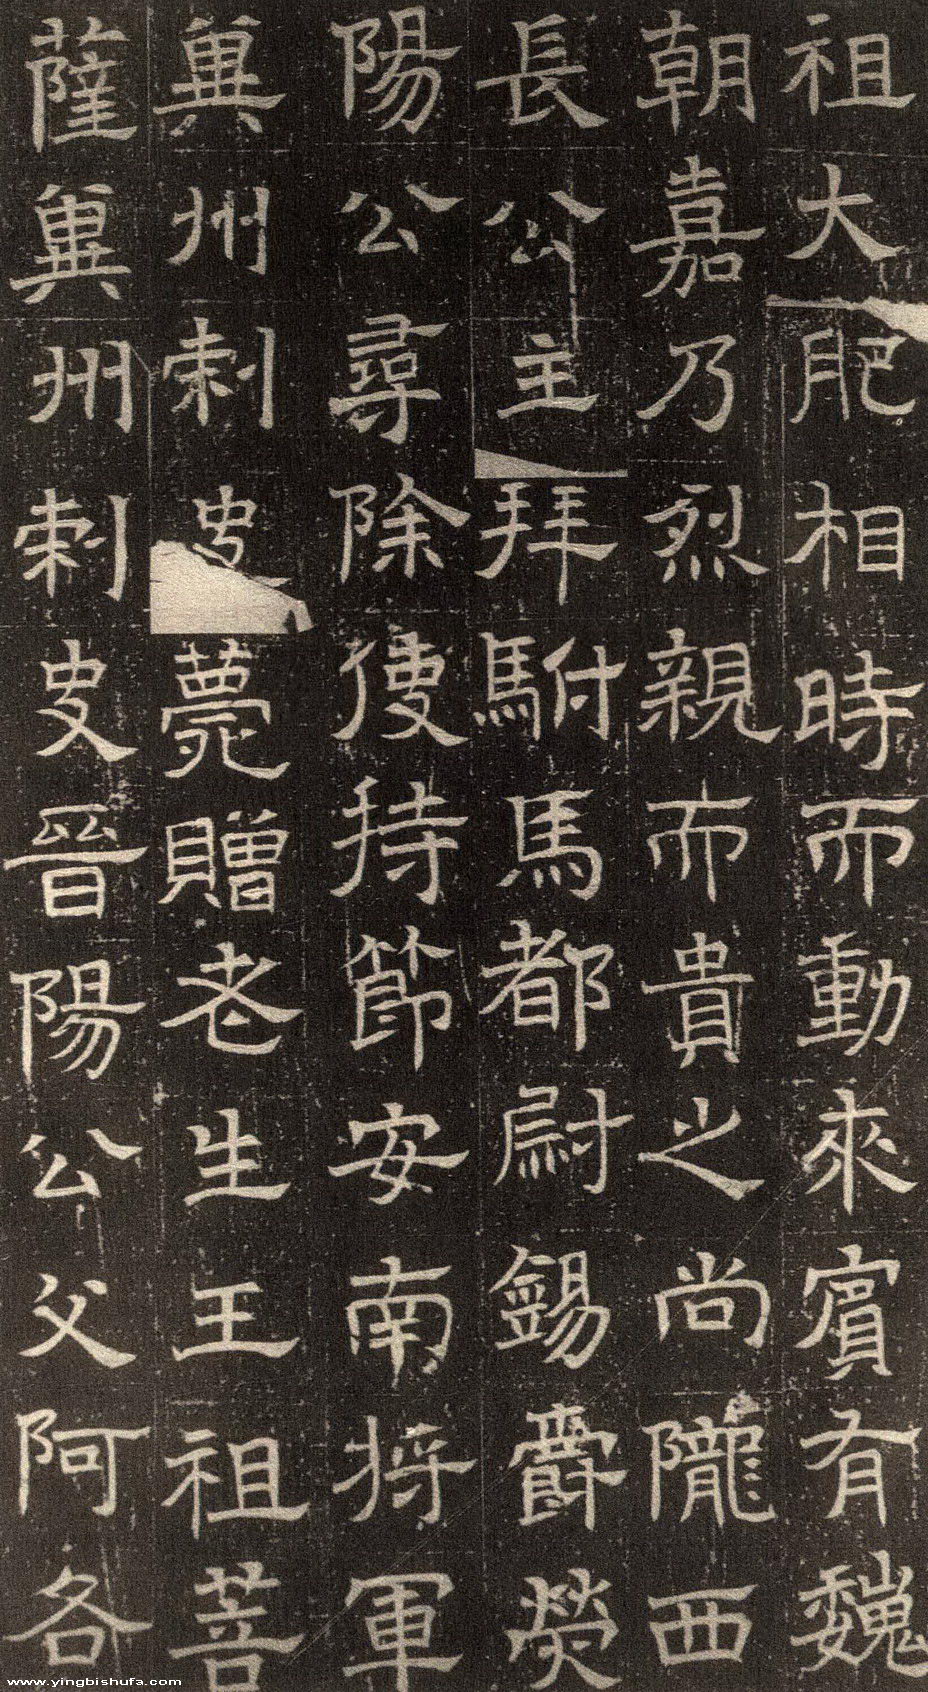 祖大肥相時而動來賓有魏
朝嘉乃烈親而貴之尚隴西
長公主拜駙馬都尉錫爵滎
陽公尋除使持節安南將軍
冀州刺史薨贈老生王祖菩
薩冀州刺史晉陽公父阿各
www.yingbishufa.com